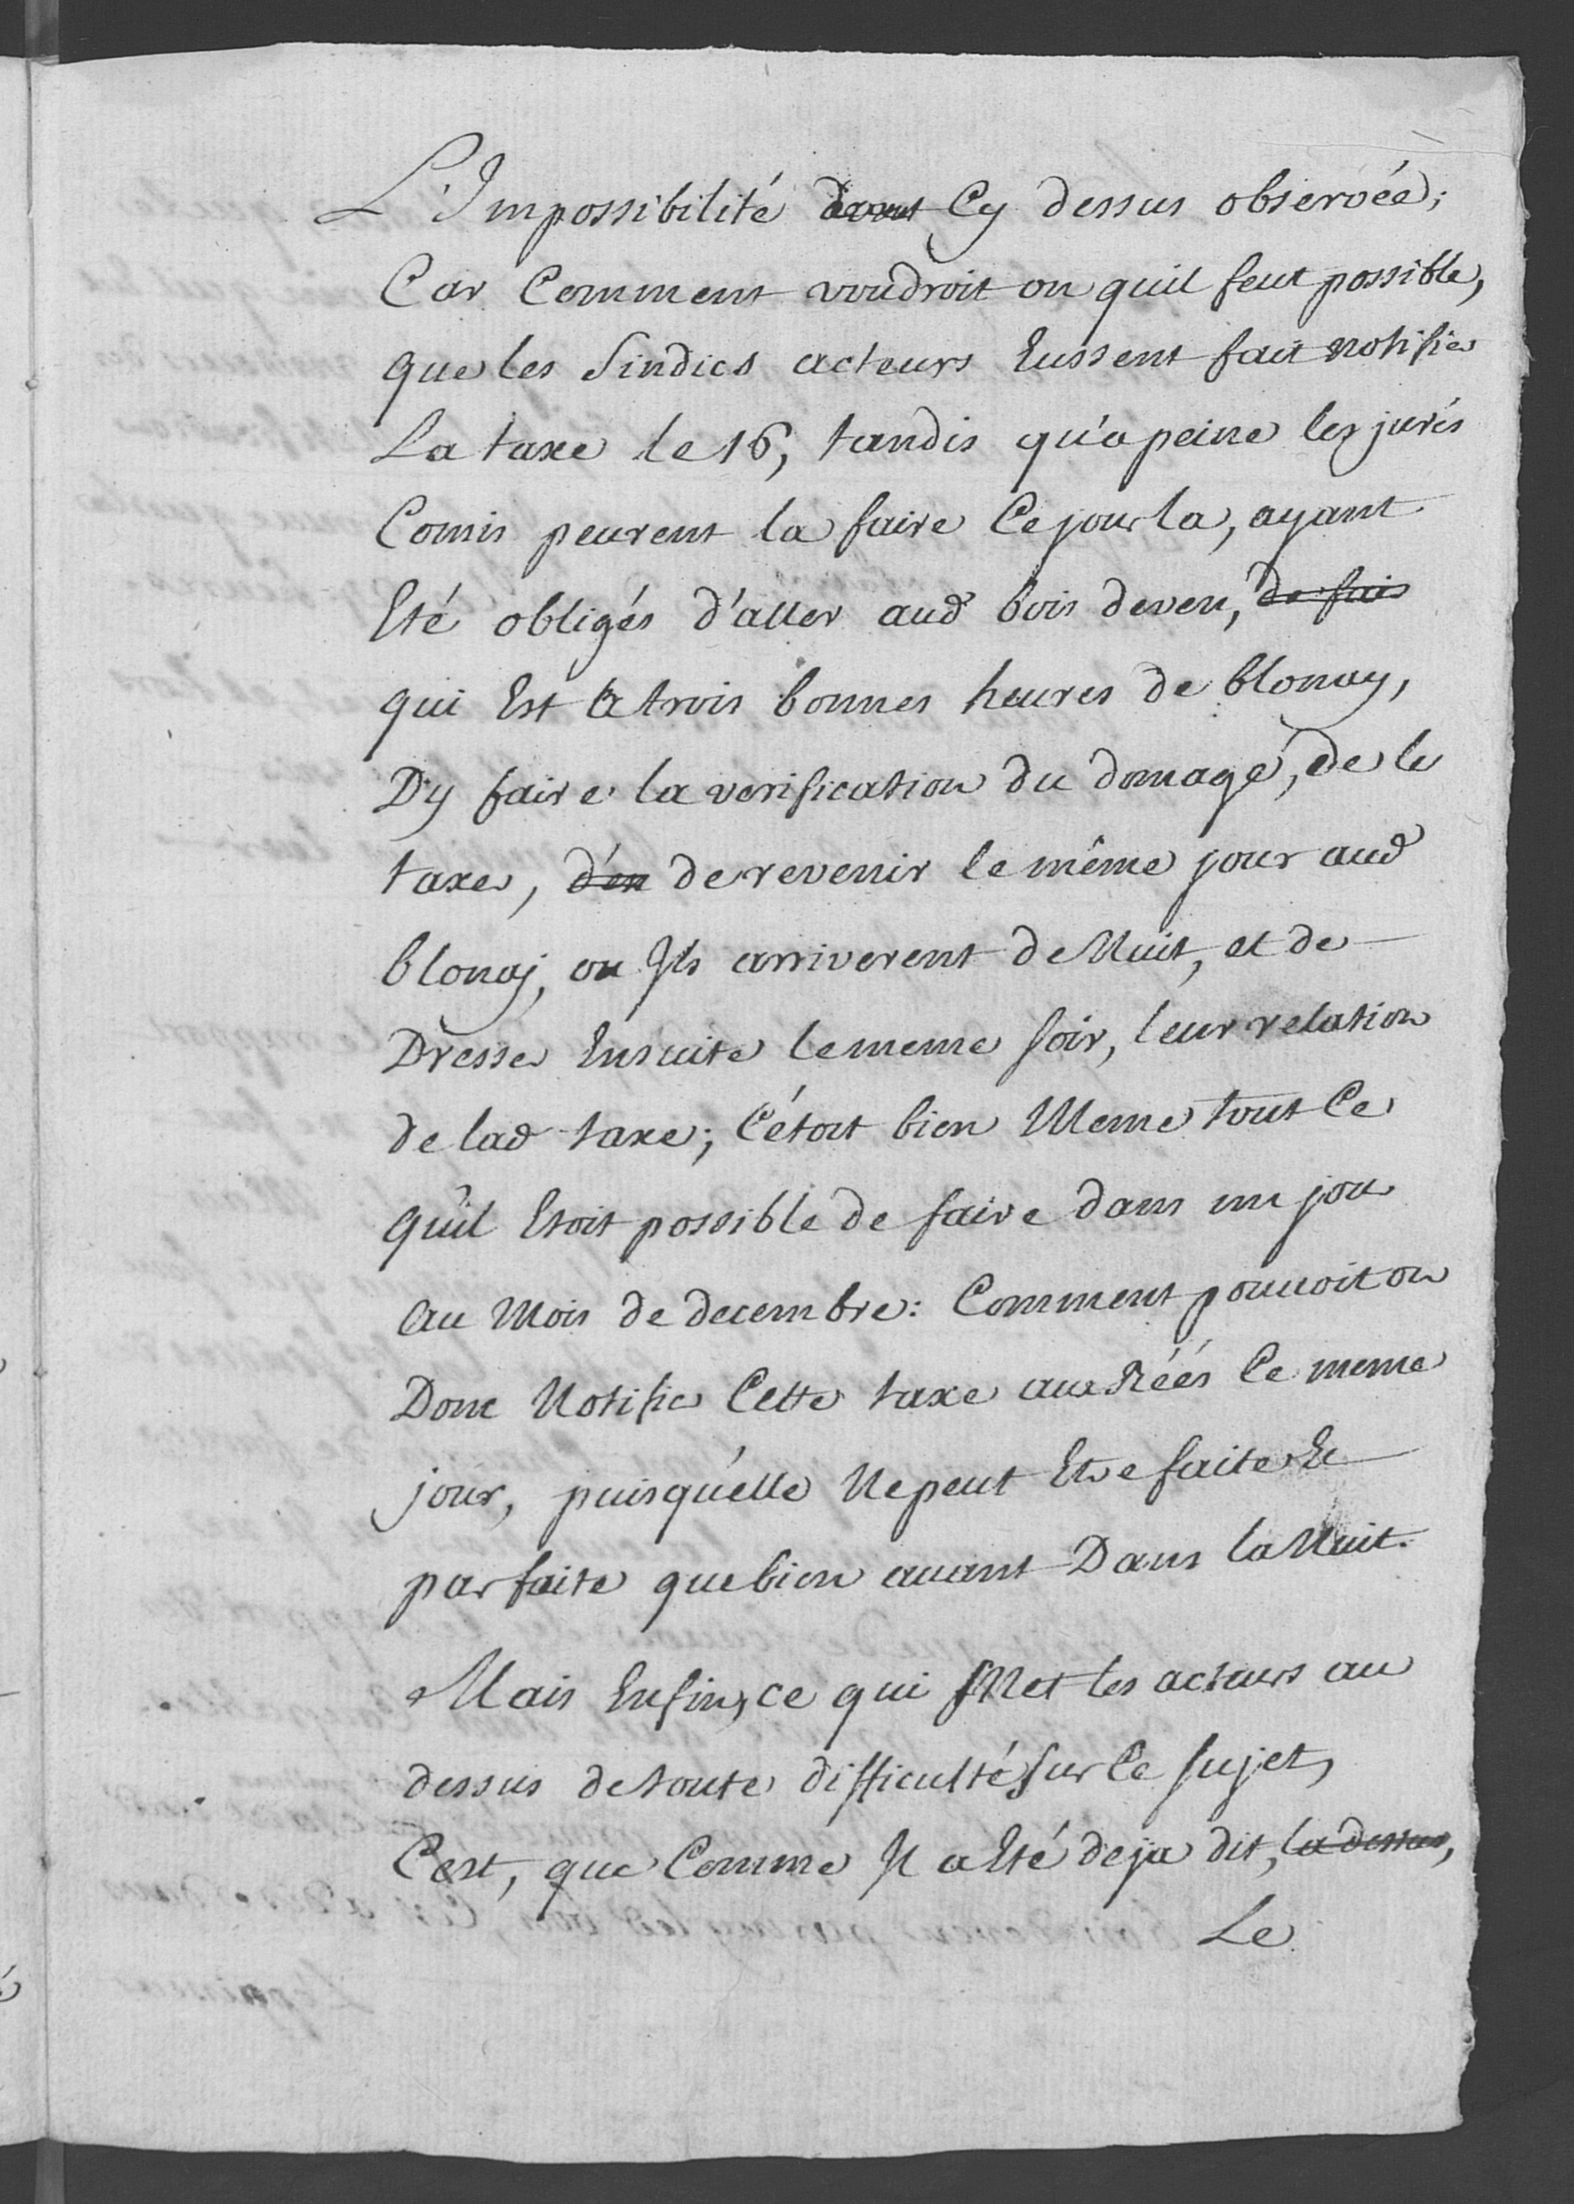 L'Impossibilité Cy dessus observée;
Car Comment voudroit on quil feut possible,
que les Sindics acteurs Eussent fait notifier
La taxe le 16, tandis qu'a peine les jurés
Comis peurent la faire Ce jour la, ayant
Eté obligés d'aller aud bois deven, de fair
qui Est a trois bonnes heures de blonay,
D'y faire la verification du domage, de le
taxer, d'en de revenir le même jour aud
blonaj, ou Ils arriverent de Nuit, et de
Dresser Ensuite le meme soir, leur relation
de lad taxe; C'étoit bien Meme tout Ce
qu'il Etoit possible de faire dans un jour
au Mois de decembre: Comment pouvoit on
Donc Notifier Cette taxe aux Réés Ce meme
jour, puisqu'elle Ne peut Etre faite Et
parfaite que bien avant Dans la Nuit.
Mais Enfin, ce qui Met les acteurs au
dessus de toute difficulté sur Ce sujet,
C'est, que Comme Il a Eté deja dit, la dessus,
Le